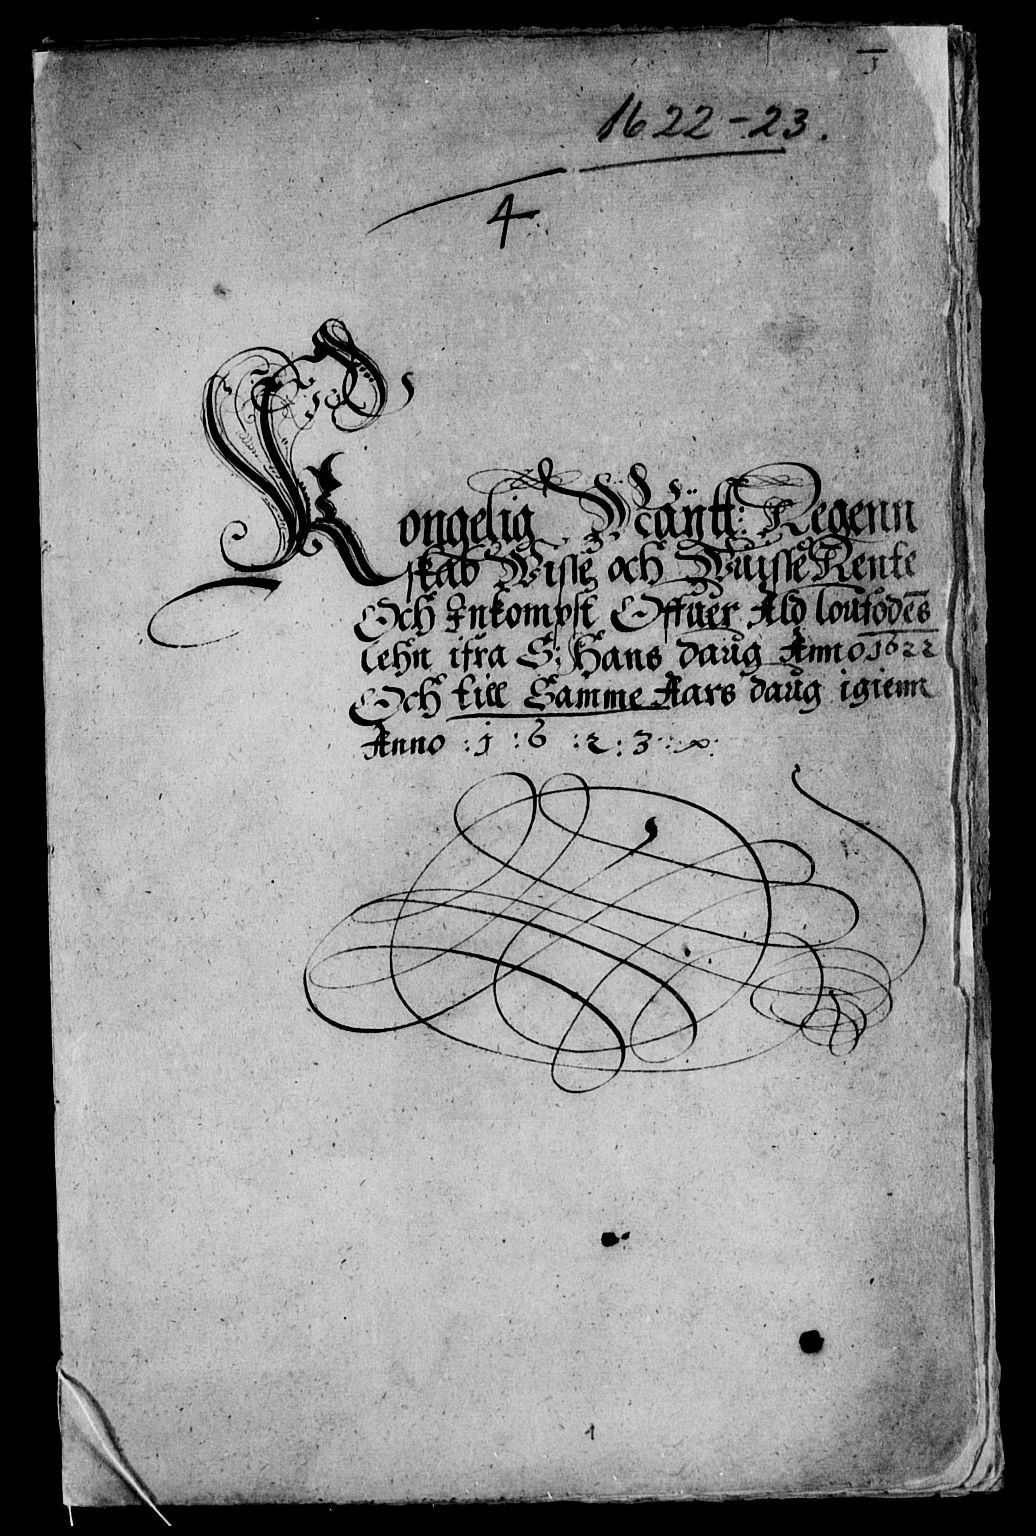 1
1622-23.
4
Kongelig Maÿtt: Regenn
skab Wisse och Wuisse Rente
Och Inkompst Offuer Ald loufodēs
lehn ifra S: Hans daug Anno 1622
Och till Samme Aars daug igienn
Anno : 1 : 6 : 2 : 3 :
1